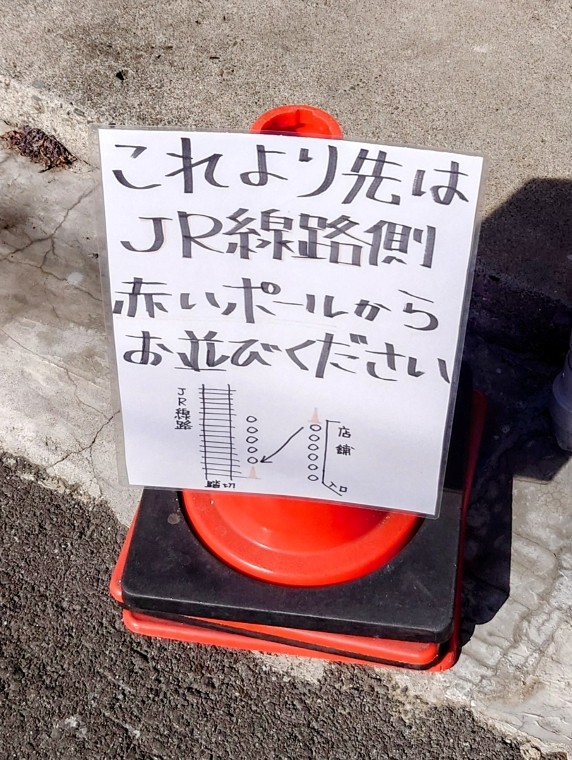 これより先は
JR線路側
赤いポールから
お並びください
JR線路
店舗
踏切
入口